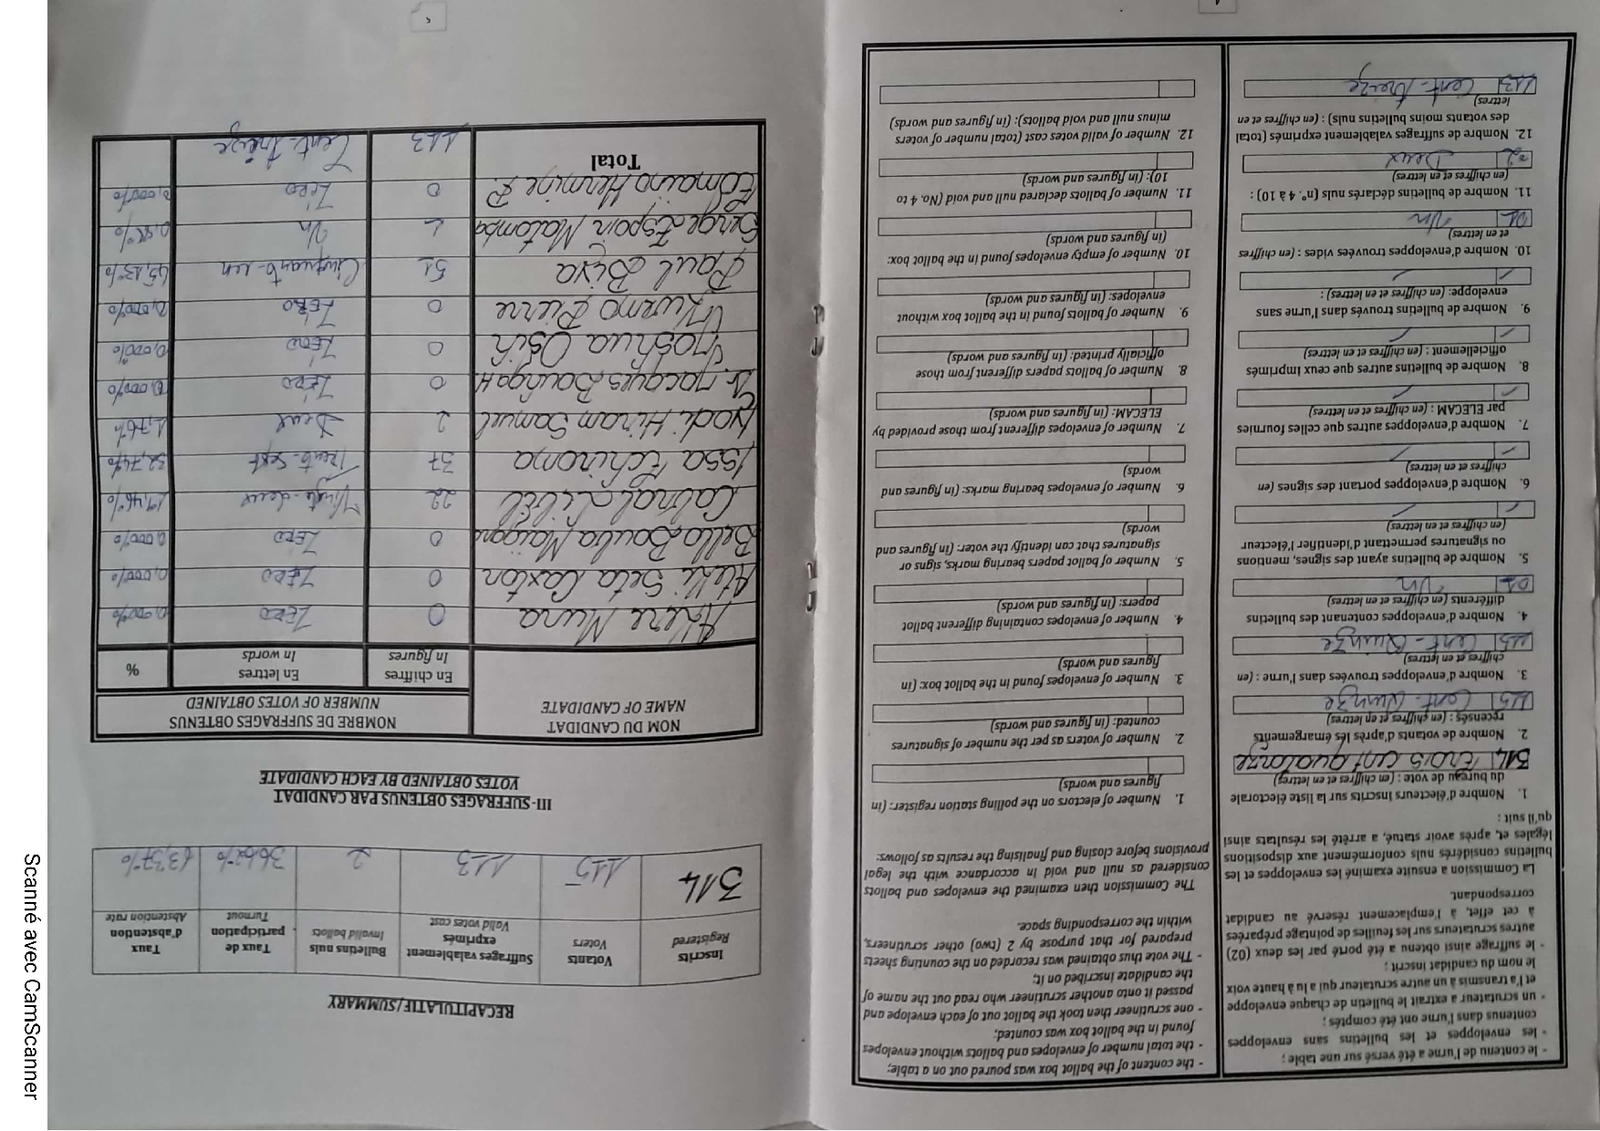 - le contenu de l'urne a été versé sur une table ;
- les enveloppes et les bulletins sans enveloppes
contenus dans l'urne ont été comptés ;
- un scrutateur a extrait le bulletin de chaque enveloppe
et l'a transmis à un autre scrutateur qui a lu à haute voix
le nom du candidat inscrit ;
- le suffrage ainsi obtenu a été porté par les deux (02)
autres scrutateurs sur les feuilles de pointage préparées
à cet effet, à l'emplacement réservé au candidat
correspondant.
La Commission a ensuite examiné les enveloppes et les
bulletins considérés nuls conformément aux dispositions
légales et, après avoir statué, a arrêté les résultats ainsi
qu'il suit :
1. Nombre d'électeurs inscrits sur la liste électorale
du bureau de vote : (en chiffres et en lettres)
314 Trois cent quatorze
2. Nombre de votants d'après les émargements
recensés : (en chiffres et en lettres)
115 Cent-Quinze
3. Nombre d'enveloppes trouvées dans l'urne : (en
chiffres et en lettres)
115 Cent-Quinze
4. Nombre d'enveloppes contenant des bulletins
différents (en chiffres et en lettres)
01 Un
5. Nombre de bulletins ayant des signes, mentions
ou signatures permettant d'identifier l'électeur
(en chiffres et en lettres)
/ /
6. Nombre d'enveloppes portant des signes (en
chiffres et en lettres)
/ /
7. Nombre d'enveloppes autres que celles fournies
par ELECAM : (en chiffres et en lettres)
/
8. Nombre de bulletins autres que ceux imprimés
officiellement : (en chiffres et en lettres)
/ /
9. Nombre de bulletins trouvés dans l'urne sans
enveloppe: (en chiffres et en lettres) :
/ /
10. Nombre d'enveloppes trouvées vides : (en chiffres
et en lettres)
01 Un
11. Nombre de bulletins déclarés nuls (n°. 4 à 10) :
(en chiffres et en lettres)
02 Deux
12. Nombre de suffrages valablement exprimés (total
des votants moins bulletins nuls) : (en chiffres et en
lettres)
113 Cent-treize
- the content of the ballot box was poured out on a table;
- the total number of envelopes and ballots without envelopes
found in the ballot box was counted;
- one scrutineer then took the ballot out of each envelope and
passed it onto another scrutineer who read out the name of
the candidate inscribed on it;
- The vote thus obtained was recorded on the counting sheets
prepared for that purpose by 2 (two) other scrutineers,
within the corresponding space.
The Commission then examined the envelopes and ballots
considered as null and void in accordance with the legal
provisions before closing and finalising the results as follows:
1. Number of electors on the polling station register: (in
figures and words)
2. Number of voters as per the number of signatures
counted: (in figures and words)
3. Number of envelopes found in the ballot box: (in
figures and words)
4. Number of envelopes containing different ballot
papers: (in figures and words)
5. Number of ballot papers bearing marks, signs or
signatures that can identify the voter: (in figures and
words)
6. Number of envelopes bearing marks: (in figures and
words)
7. Number of envelopes different from those provided by
ELECAM: (in figures and words)
8. Number of ballots papers different from those
officially printed: (in figures and words)
9. Number of ballots found in the ballot box without
envelopes: (in figures and words)
10. Number of empty envelopes found in the ballot box:
(in figures and words)
11. Number of ballots declared null and void (No. 4 to
10): (in figures and words)
12. Number of valid votes cast (total number of voters
minus null and void ballots): (in figures and words)
RECAPITULATIF/SUMMARY
Inscrits Registered | Votants Voters | Suffrages valablement exprimés Valid votes cast | Bulletins nuls Invalid ballots | Taux de participation Turnout | Taux d'abstention Abstention rate
314 | 115 | 113 | 2 | 36,62% | 63,37%
III- SUFFRAGES OBTENUS PAR CANDIDAT
VOTES OBTAINED BY EACH CANDIDATE
NOM DU CANDIDAT NAME OF CANDIDATE | NOMBRE DE SUFFRAGES OBTENUS NUMBER OF VOTES OBTAINED
En chiffres In figures | En lettres In words | %
Akere Muna | 0 | ZERO | 0,000%
Ateki Seta Caxton | 0 | ZERO | 0,000%
Bello Bouba Maigari | 0 | ZERO | 0,000%
Cabral Libii | 22 | Vingt-deux | 19,46%
Issa Tchiroma | 37 | Trente-Sept | 32,74%
Iyodi Hiram Samuel | 2 | Deux | 1,76%
Dr. Jacques Bougha H | 0 | ZÉRO | 0,000%
Joshua Osih | 0 | ZÉRO | 0,000%
Kwemo Pierre | 0 | ZÉRO | 0,000%
Paul Biya | 51 | Cinquante-un | 45,13%
Serge Espoir Matomba | 1 | Un | 0,88%
Tomaïno Hermine P. | 0 | Zéro | 0,000%
Total | 113 | Cent-Treize
Scanné avec CamScanner